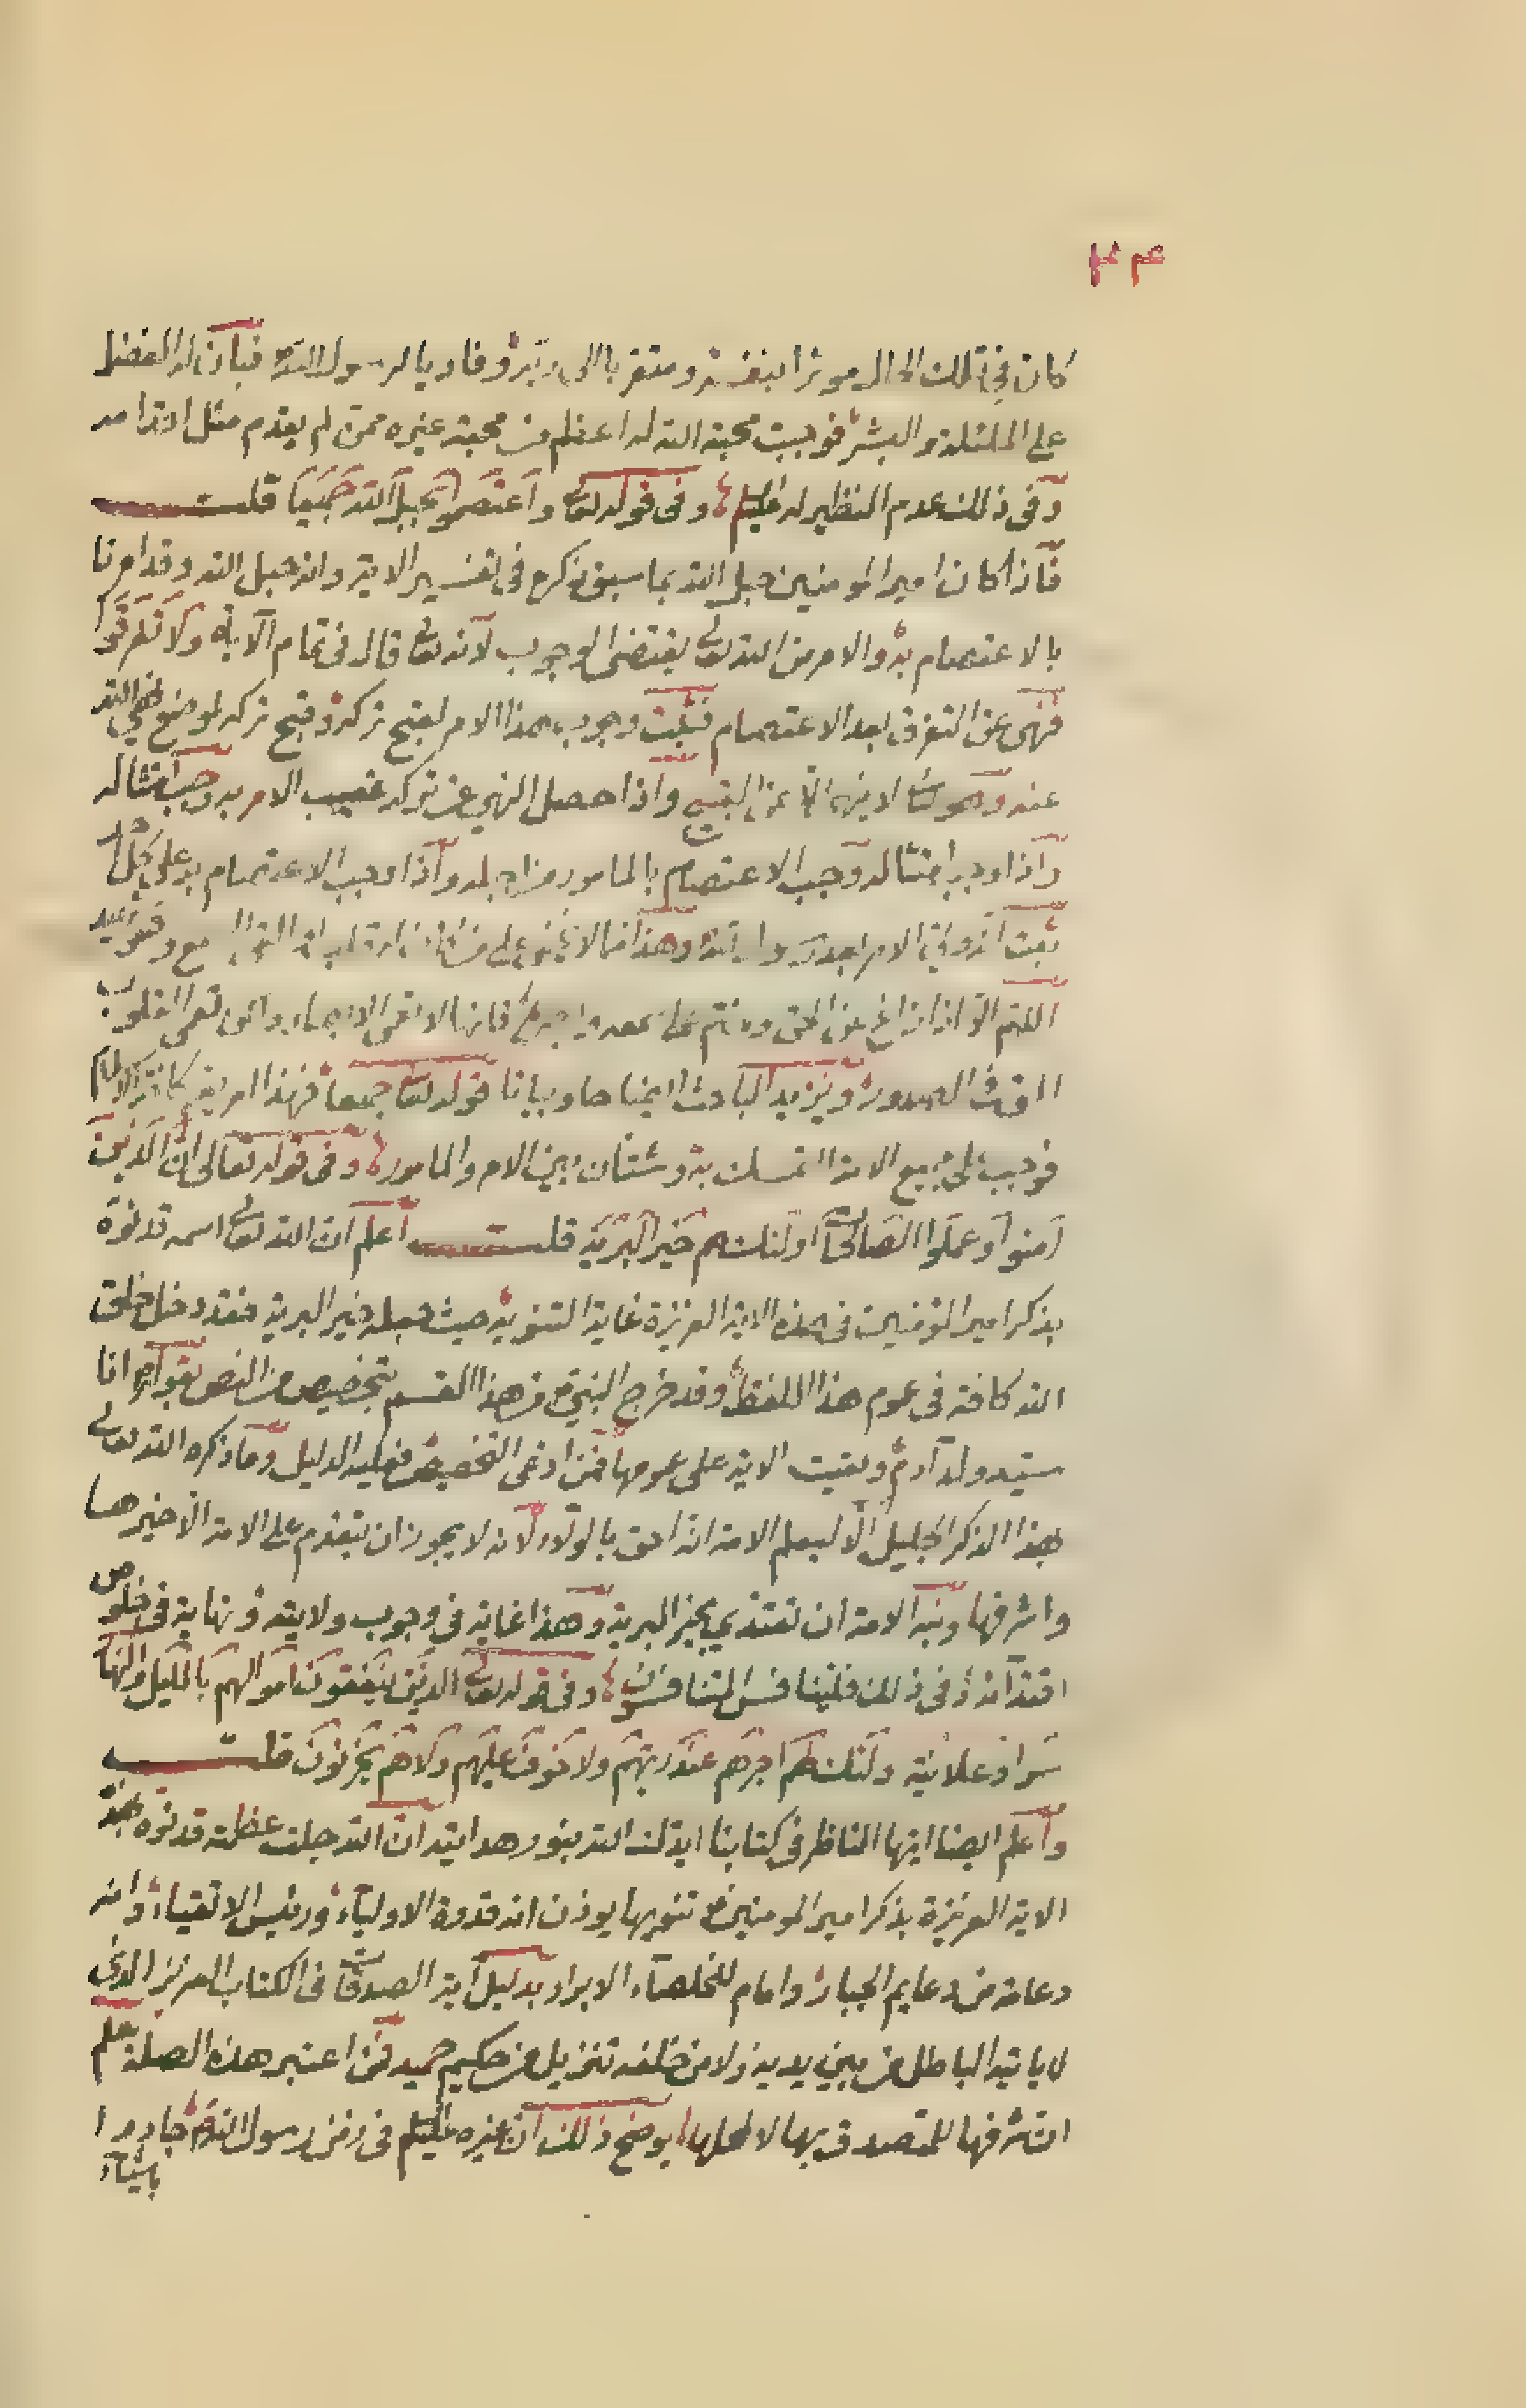 كان في تلك الحال موثرا بنفسه و متقربا الى ربه و فاديا لرسول الله فبان له الفضل
على الملئكة و البشر فوجبت محبة الله له اعظم من محبة غيره ممن لم يقدم مثل اقدامه
و في ذلك عدم النظير له عليه السلم و في قوله تعالى و اعتصموا بحبل الله جميعا قلت
فاذا كان امير المومنين حبل الله بما سبق ذكره في تفسير الاية و انه حبل الله و قد امرنا
بالاعتصام به و الامر من الله تعالى يقتضى الوجوب لانه تعالى قال في تمام الآية و لا تفرقوا
فنهى عن التفرق بعد الاعتصام فثبت وجوب هذا الامر لقبح تركه و قبح تركه لموضع نهى الله
عنه و هو تعالى لا ينهى الا عن القبيح و اذا حصل النهى عن تركه عقيب الامر به وجب امتثاله
و اذا وجب امتثاله وجب الاعتصام بالمامور من اجله و اذا وجب الاعتصام به على كل
ثبت انه ولى الامر بعد الله و رسوله و هذا مما لا يخفى على من كان له قلب
اللهم الا اذا زاغ عن الحق فانها لا تعمى الابصار و لكن تعمى القلوب
التي في الصدور و يزيد الباحث ايضاحا و بيانا قوله تعالى جميعا فهذا امر
فوجب على جميع الامة التمسك به و شتان بين الامر و المامور و في قوله تعالى ان الذين
آمنوا و عملوا الصالحات اولئك هم خير البرية قلت اعلم ان الله تعالى اسمه قد نوه
بذكر امير المؤمنين في هذه الاية العزيزة غاية التنويه حيث جعله خير البرية فقد دخل خلق
الله كافة في عموم هذا اللفظ و قد خرج النبي من هذا القسم بتخصيص من النص بقوله انا
سيد ولد آدم و بقيت الاية على عمومها فمن ادعى التخصيص فعليه الدليل و ما ذكره الله تعالى
بهذا الذكر الجليل الا ليعلم الامة انه احق بالولاء لانه لا يجوز ان يتقدم على الامة الا خيرها
و اشرفها و نبه الامة ان تقتدي بخير البرية و هذا غاية في وجوب ولايته و نهاية في خلوص
و في ذلك فليتنافس المتنافسون و في قوله تعالى الذين ينفقون اموالهم بالليل و النهار
سرا و علانية فلهم اجرهم عند ربهم و لا خوف عليهم و لا هم يحزنون قلت
و اعلم ايضا ايها الناظر في كتابنا ايدك الله بنور هدايته ان الله جلت عظمته قد نوه بهذه
الاية العزيزة بذكر امير المومنين تنويها يوذن انه قدوة الاولياء و رئيس الاتقياء و انه
دعامة من دعايم الجبار و امام للخلصاء الابرار بدليل آية الصدقات في الكتاب العزيز الذي
لا ياتيه الباطل من بين يديه و لا من خلفه تنزيل من حكيم حميد فمن اعتبر هذه الصلة يعلم
ان شرفها للمتصدق بها لا لمحلها يوضح ذلك ان غيره عليه السلم في زمن رسول الله جادوا
باشياء